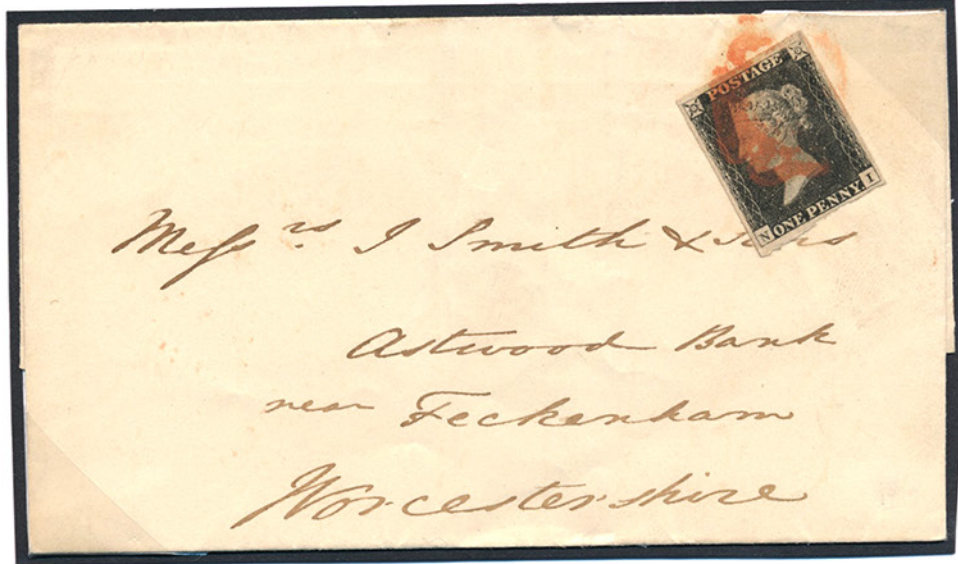 POSTAGE
ONE PENNY
N I
Messrs J Smith & Sons
Astwood Bank
near Feckenham
Worcestershire